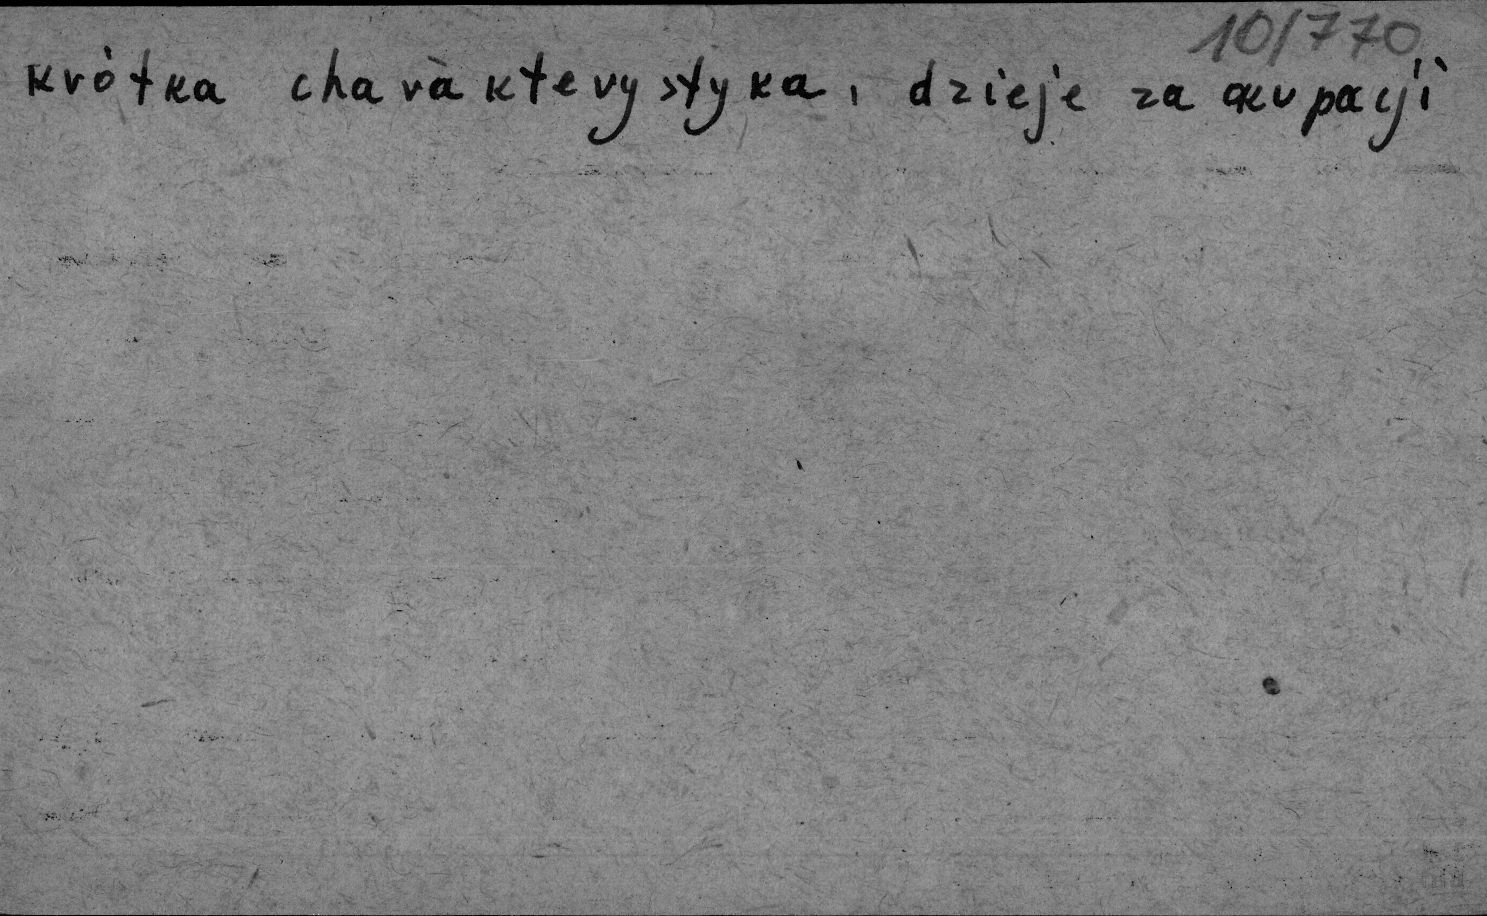 10/770
krótka charakterystyka, dzieje za okupacji